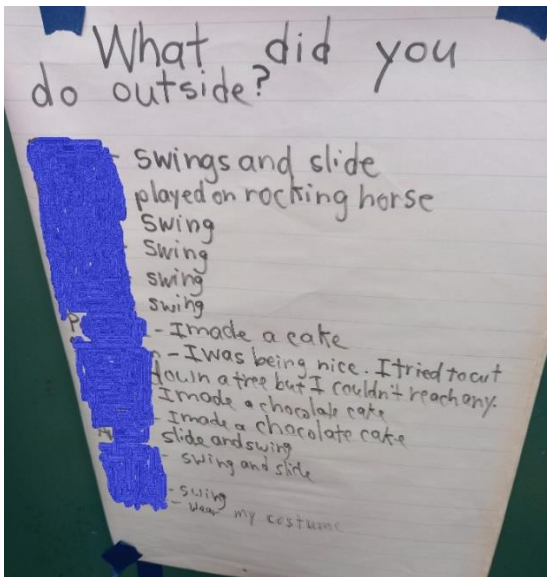 What did you
do outside?
- swings and slide
played on rocking horse
swing
swing
swing
swing
P - I made a cake
- I was being nice. I tried to cut
down a tree but I couldn't reach any.
I made a chocolate cake
- I made a chacolate cake
slide and swing
- swing and slide
- swing
- wear my costume